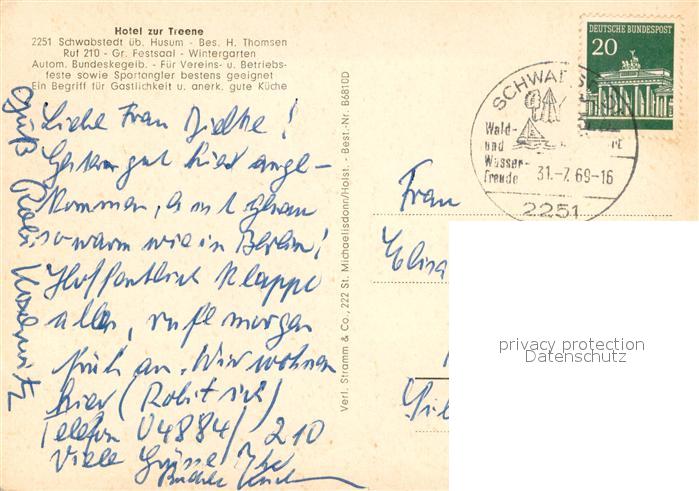 Hotel zur Treene
2251 Schwabstedt üb. Husum - Bes. H. Thomsen
Ruf 210 - Gr. Festsaal - Wintergarten
Autom. Bundeskegelb. - Für Vereins- u. Betriebs-
feste sowie Sportangler bestens geeignet
Ein Begriff für Gastlichkeit u. anerk. gute Küche
Liebe Frau !
Gestern gut hier ange-
kommen,
so warm wie in Berlin!
Hoffentlich klappt
alles, rufe morgen
früh an. Wir wohnen
hier (
Telefon 04884/210
Viele Grüsse Ihr
Gruß
Verl. Stramm & Co., 222 St. Michaelisdonn/Holst. - Best.-Nr. B6810D
DEUTSCHE BUNDESPOST
20
Wald-
und
Wasser-
freude
31.-7.69-16
2251
Frau
Elisa
privacy protection
Datenschutz